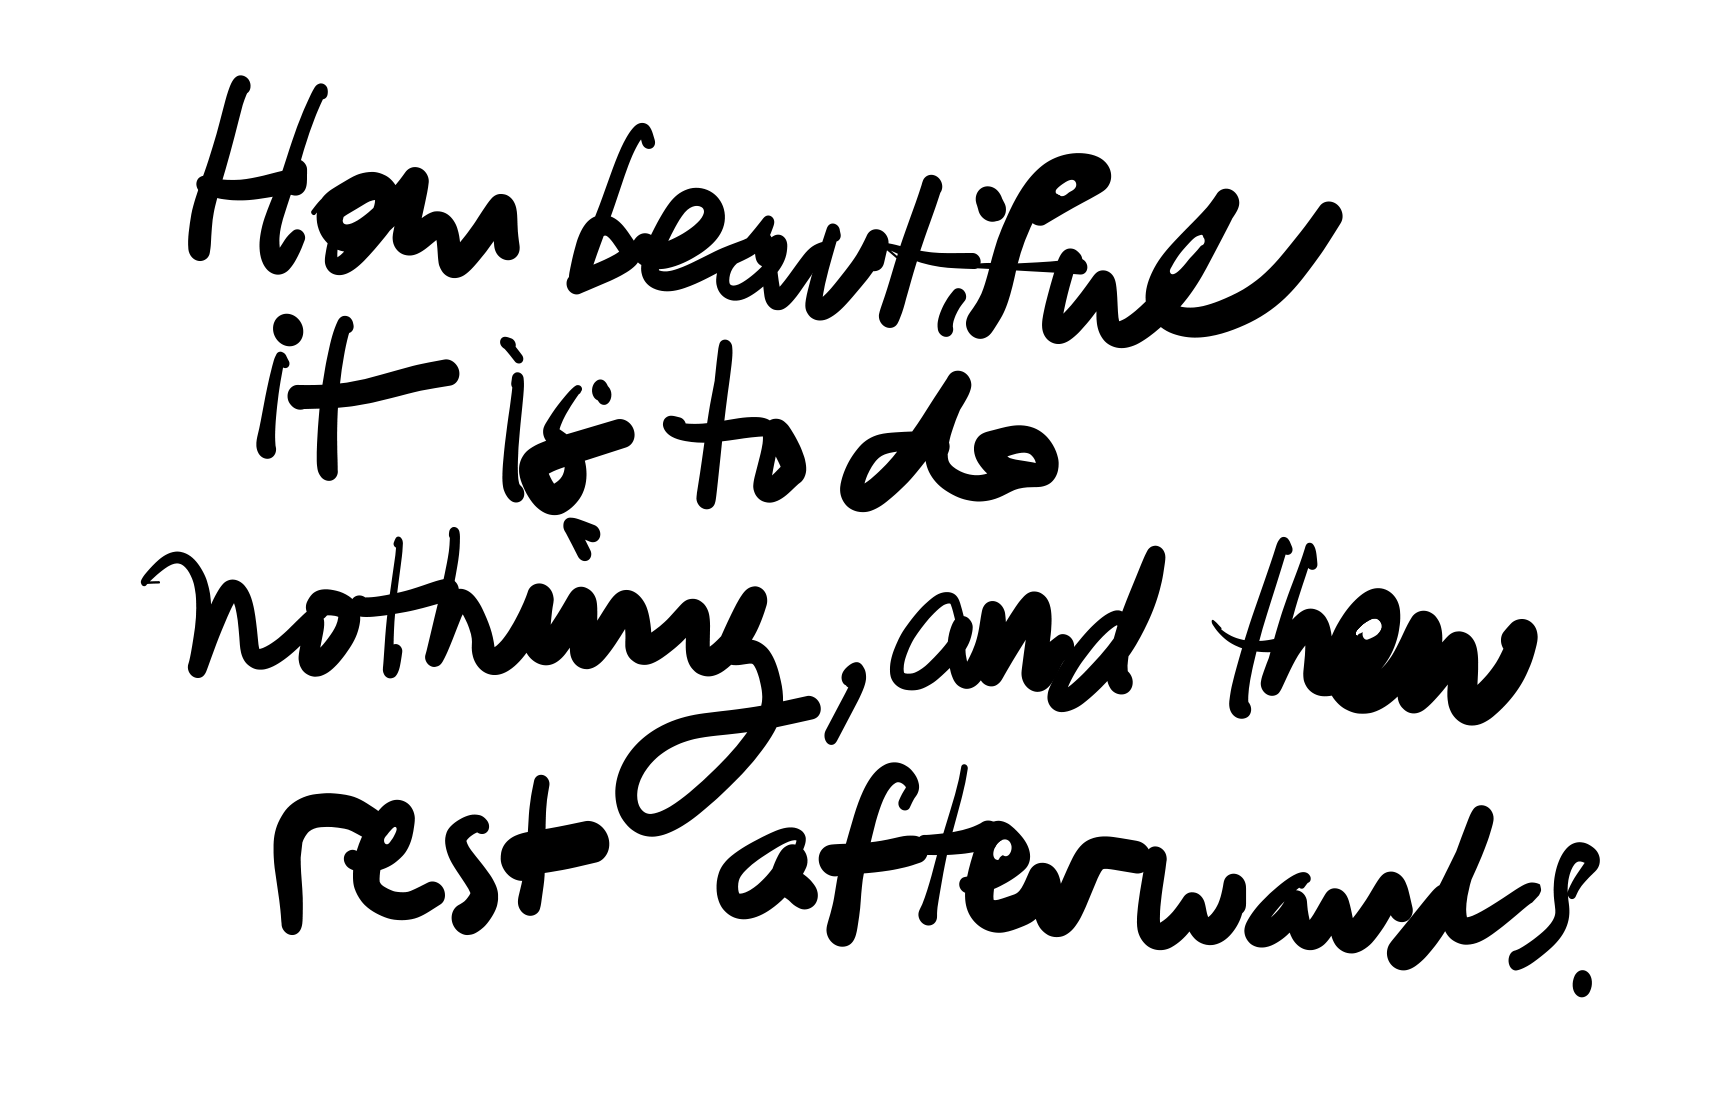 How beautiful
it is to do
nothing, and then
rest afterwards.